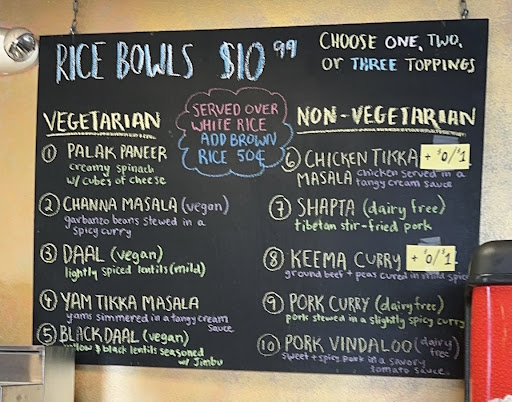 RICE BOWLS $10.99
CHOOSE ONE, TWO,
OR THREE TOPPINGS
SERVED OVER
WHITE RICE
ADD BROWN
RICE 50¢
VEGETARIAN
1 PALAK PANEER
creamy spinach
w/ cubes of cheese
2 CHANNA MASALA (vegan)
garbanzo beans stewed in a
spicy curry
3 DAAL (vegan)
lightly spiced lentils (mild)
4 YAM TIKKA MASALA
yams simmered in a tangy cream
sauce
5 BLACK DAAL (vegan)
yellow & black lentils seasoned
w/ Jimbu
NON-VEGETARIAN
6 CHICKEN TIKKA + $0/$1
MASALA chicken served in a
tangy cream sauce
7 SHAPTA (dairy free)
tibetan stir-fried pork
8 KEEMA CURRY + $0/$1
ground beef + peas cured in mild spice
9 PORK CURRY (dairy free)
pork stewed in a slightly spicy curry
10 PORK VINDALOO (dairy
free)
sweet + spicy pork in a savory
tomato sauce